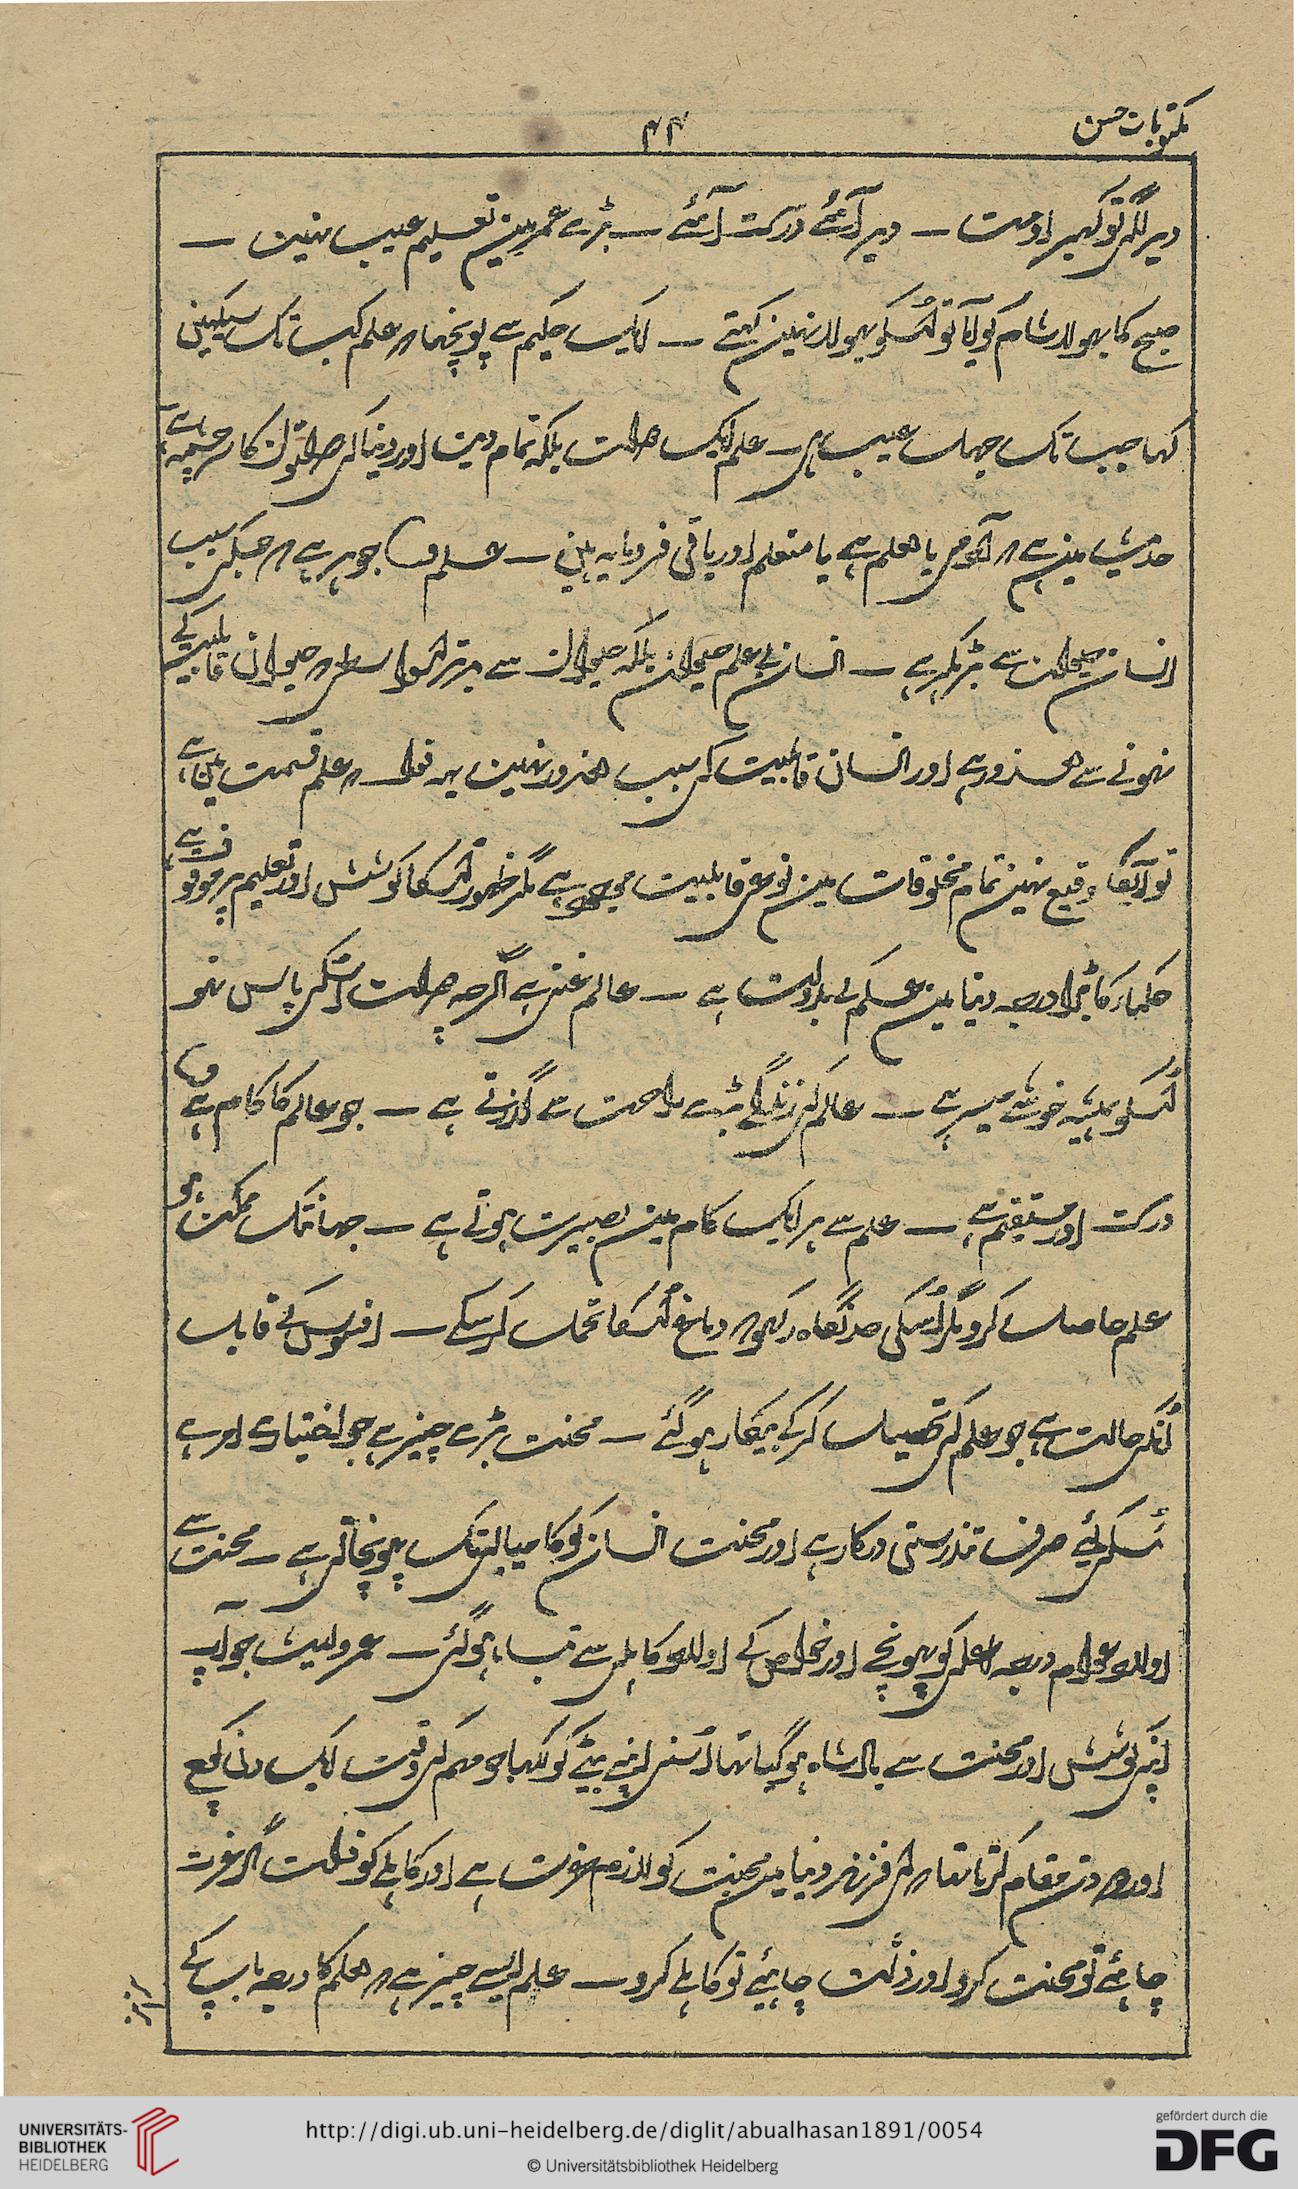 مکتوبات حسن
۴۴
دیر لگی تو گھبراؤ مت — دیر آئے درست آئے — بڑے عمر مین تعلیم عیب نہین —
صبح کا بھولا شام کو آیا تو اُسکو بھولا نہین کہتے — ایک حکیم سے پوچھا کہ علم کب تک سیکھنی
کہا جب تک جہل عیب ہی — علم ایک دولت بلکہ تمام دین اور دنیا کی دولتون کا سرچشمہ ہے
حدیث مین ہے کہ آدمی یا معلم ہے یا متعلم اور باقی فرومایہ ہین — علم وہ جوہر ہے کہ جسکی سبب
انسان حیوان سے بڑہکر ہے — انسان بے علم حیوان بلکہ حیوان سے بدتر اسواسطے کہ حیوان قابلیت کے
نہونے سے معذور ہے اور انسان قابلیت کی سبب معذور نہین یہ قول کہ علم قسمت مین ہے
تو آیگا وقیع نہین تمام مخلوقات مین نوعی قابلیت موجود ہے مگر ظہور اُسکا کوشش اور تعلیم پر موقوف ہے
حکماء کا بڑا درجہ دنیا مین علم کے بدولت ہے — عالم غنی ہے اگرچہ دولت اُسکی پاس نہو
اُسکو ہمیشہ خوشی میسر ہے — عالم کی زندگی بڑے راحت سے گذرتے ہے — جو عالم کا کام ہے وہ
درست اور مستقیم ہے — علم سے ہر ایک کام مین بصیرت ہوتے ہے — جہانتک ممکن ہو
علم حاصل کرو مگر اُسکی حد نگاہ رکھو کہ دماغ اُسکا تحمل کر سکے — افسوس کے قابل
اُنکی حالت ہے جو علم کی تحصیل کر کے بیکار ہو گئے — محنت بڑے چیز ہے جو اختیاری امر ہے
اُسکی لئے صرف تندرستی درکار ہے اور محنت انسان کو کامیابی تک پہونچاتی ہے — محنت سے
اولاد عوام درجہ اعلی کو پہونچے اور خواص کے اولاد کاہلی سے تباہ ہو گئی — عمرو لیث جو آپ
اپنی کوشش اور محنت سے بادشاہ ہو گیا تھا اُسنی اپنے بیٹے کو لکھا جو مہم کی وقت ایک دن کوچ
اور دو دن مقام کرتا تھا کہ اے فرزند دنیا مین محنت کو لازم عزت ہے اور کاہلے کو ذلت اگر عزت
چاہئے تو محنت کرو اور ذلت چاہئے تو کاہلے کرو — علم ایسے چیز ہے کہ معلم کا درجہ باپ کے
UNIVERSITÄTS-
BIBLIOTHEK
HEIDELBERG
http://digi.ub.uni-heidelberg.de/diglit/abualhasan1891/0054
© Universitätsbibliothek Heidelberg
gefördert durch die
DFG